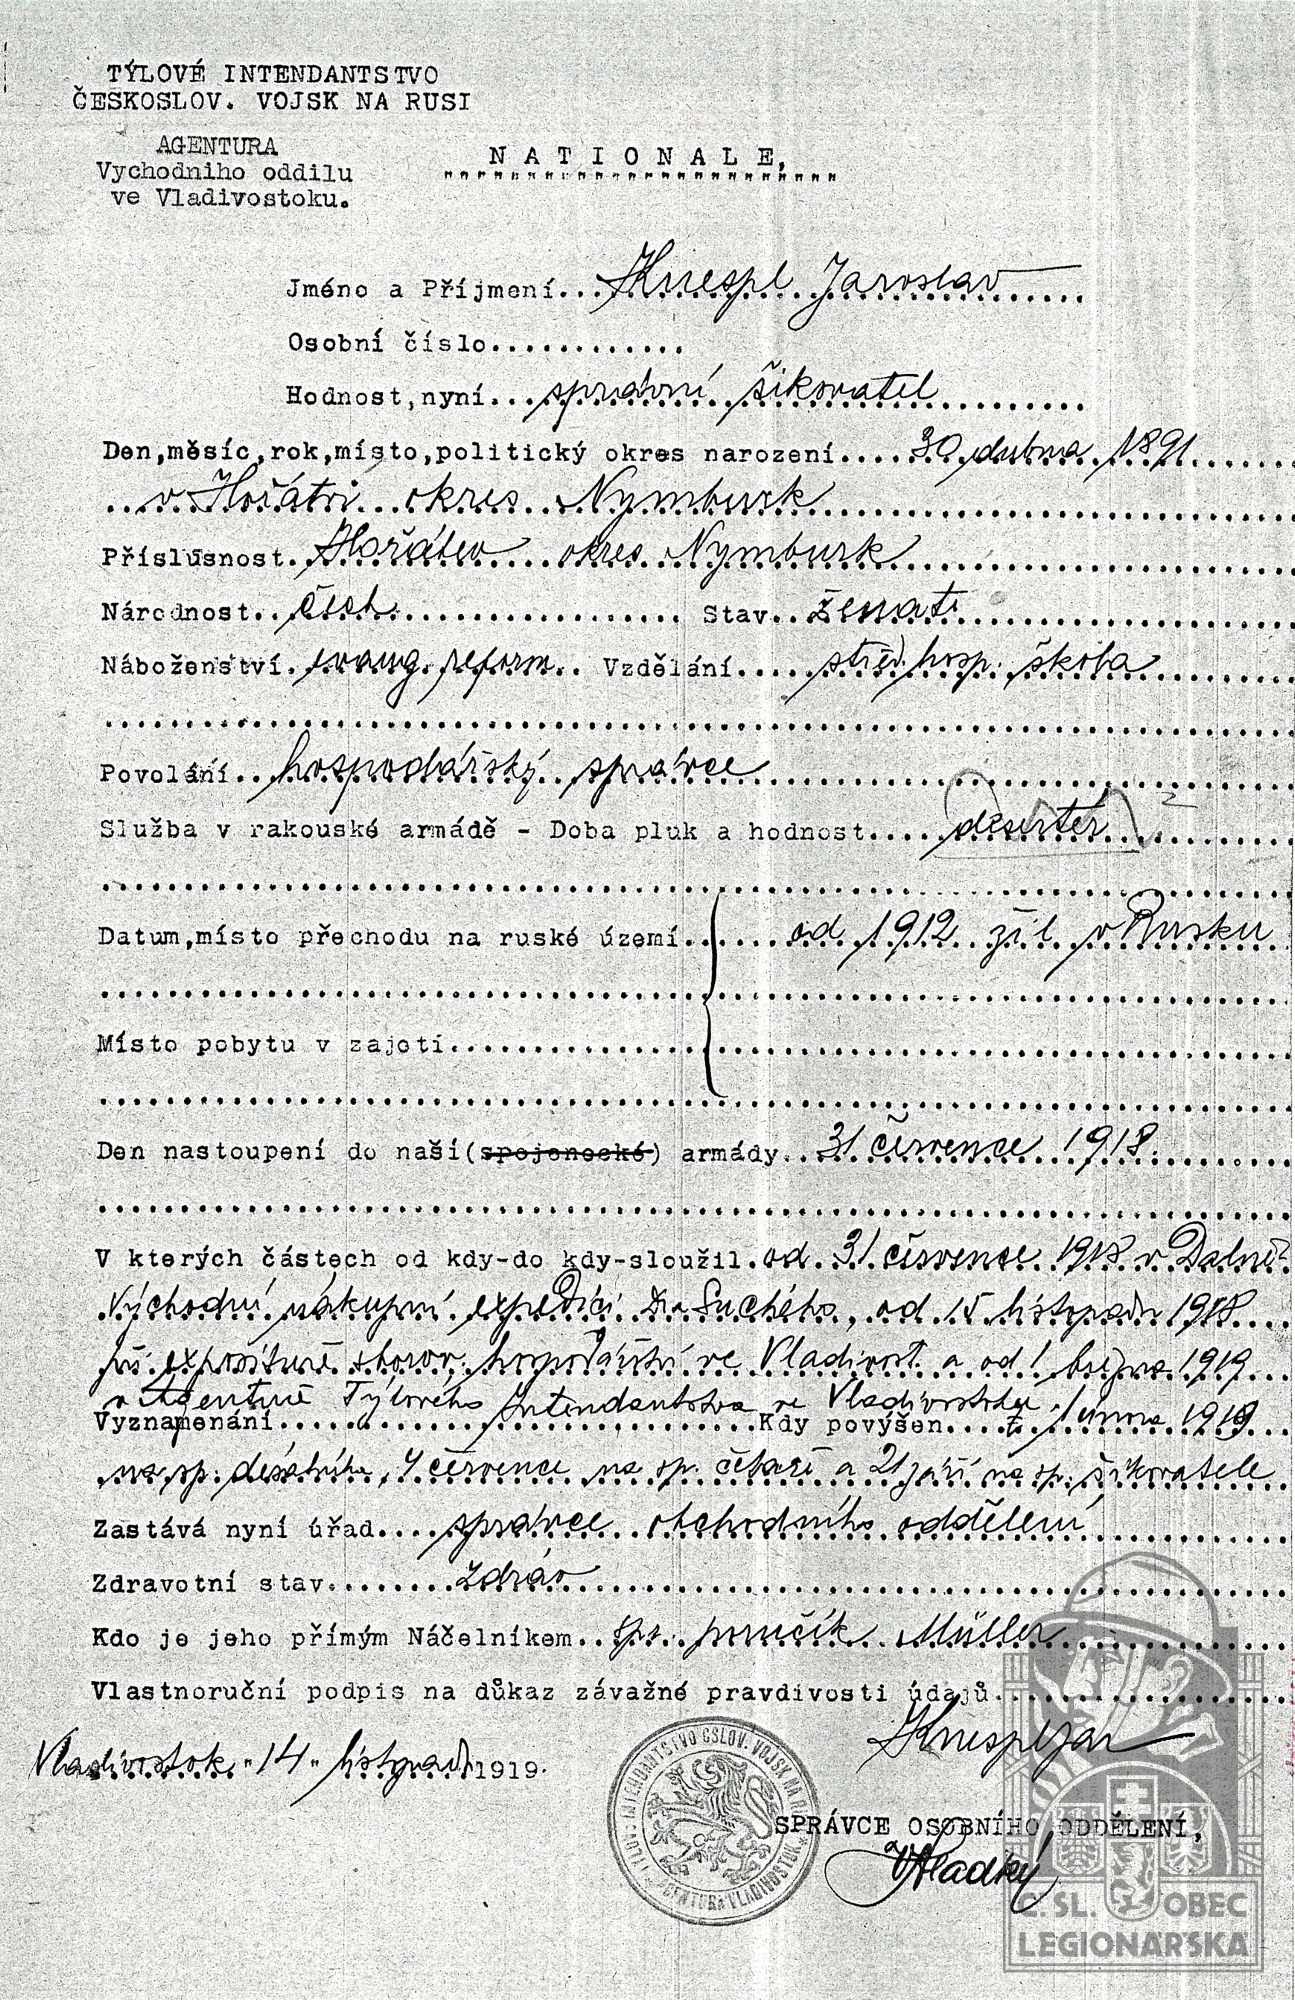 TÝLOVÉ INTENDANTSTVO
ČESKOSLOV. VOJSK NA RUSI
AGENTURA
Vychodního oddílu
ve Vladivostoku.
NATIONALE,
Jméno a Příjmení... Knespl Jaroslav
Osobní číslo............
Hodnost,nyní... správní šikovatel
Den,měsíc,rok,místo,politický okres narození.... 30 dubna 1891
v Hořátvi okres Nymburk
Příslušnost. Hořátev okres Nymburk
Národnost.. čech Stav.. ženatý
Náboženství. evang. reform. Vzdělání.... střed. hosp. škola
Povolání.. hospodářský správce
Služba v rakouské armádě - Doba pluk a hodnost.... desertér
Datum,místo přechodu na ruské území.. od 1912 žil v Rusku
Místo pobytu v zajetí
Den nastoupení do naší(spojenecké) armády.. 31 července 1918.
V kterých částech od kdy-do kdy-sloužil. od 31 července 1918 v Dalně-
Východní nákupní expedici Dra Suchého, od 15 listopadu 1918
při expositůře sborov. hospodářství ve Vladivost. a od 1 března 1919
v Agentuře Týlového Intendantstva ve Vladivostoku
Vyznamenání Kdy povýšen.... 1 února 1919
na sp. desátníka, 1 července na sp. četaře a 21 září na sp. šikovatele
Zastává nyní úřad.... správce obchodního oddělení
Zdravotní stav....... zdráv
Kdo je jeho přímým Náčelníkem.. sp. poručík Müller
Vlastnoruční podpis na důkaz závažné pravdivosti údajů
Knespl Jar
Vladivostok "14" listopadu 1919.
SPRÁVCE OSOBNÍHO ODDĚLENÍ,
VHladký
TÝLOVÉ INTENDANTSTVO ČSLOV. VOJSK NA RUSI
AGENTURA VLADIVOSTOK
Č. SL. OBEC
LEGIONÁŘSKÁ